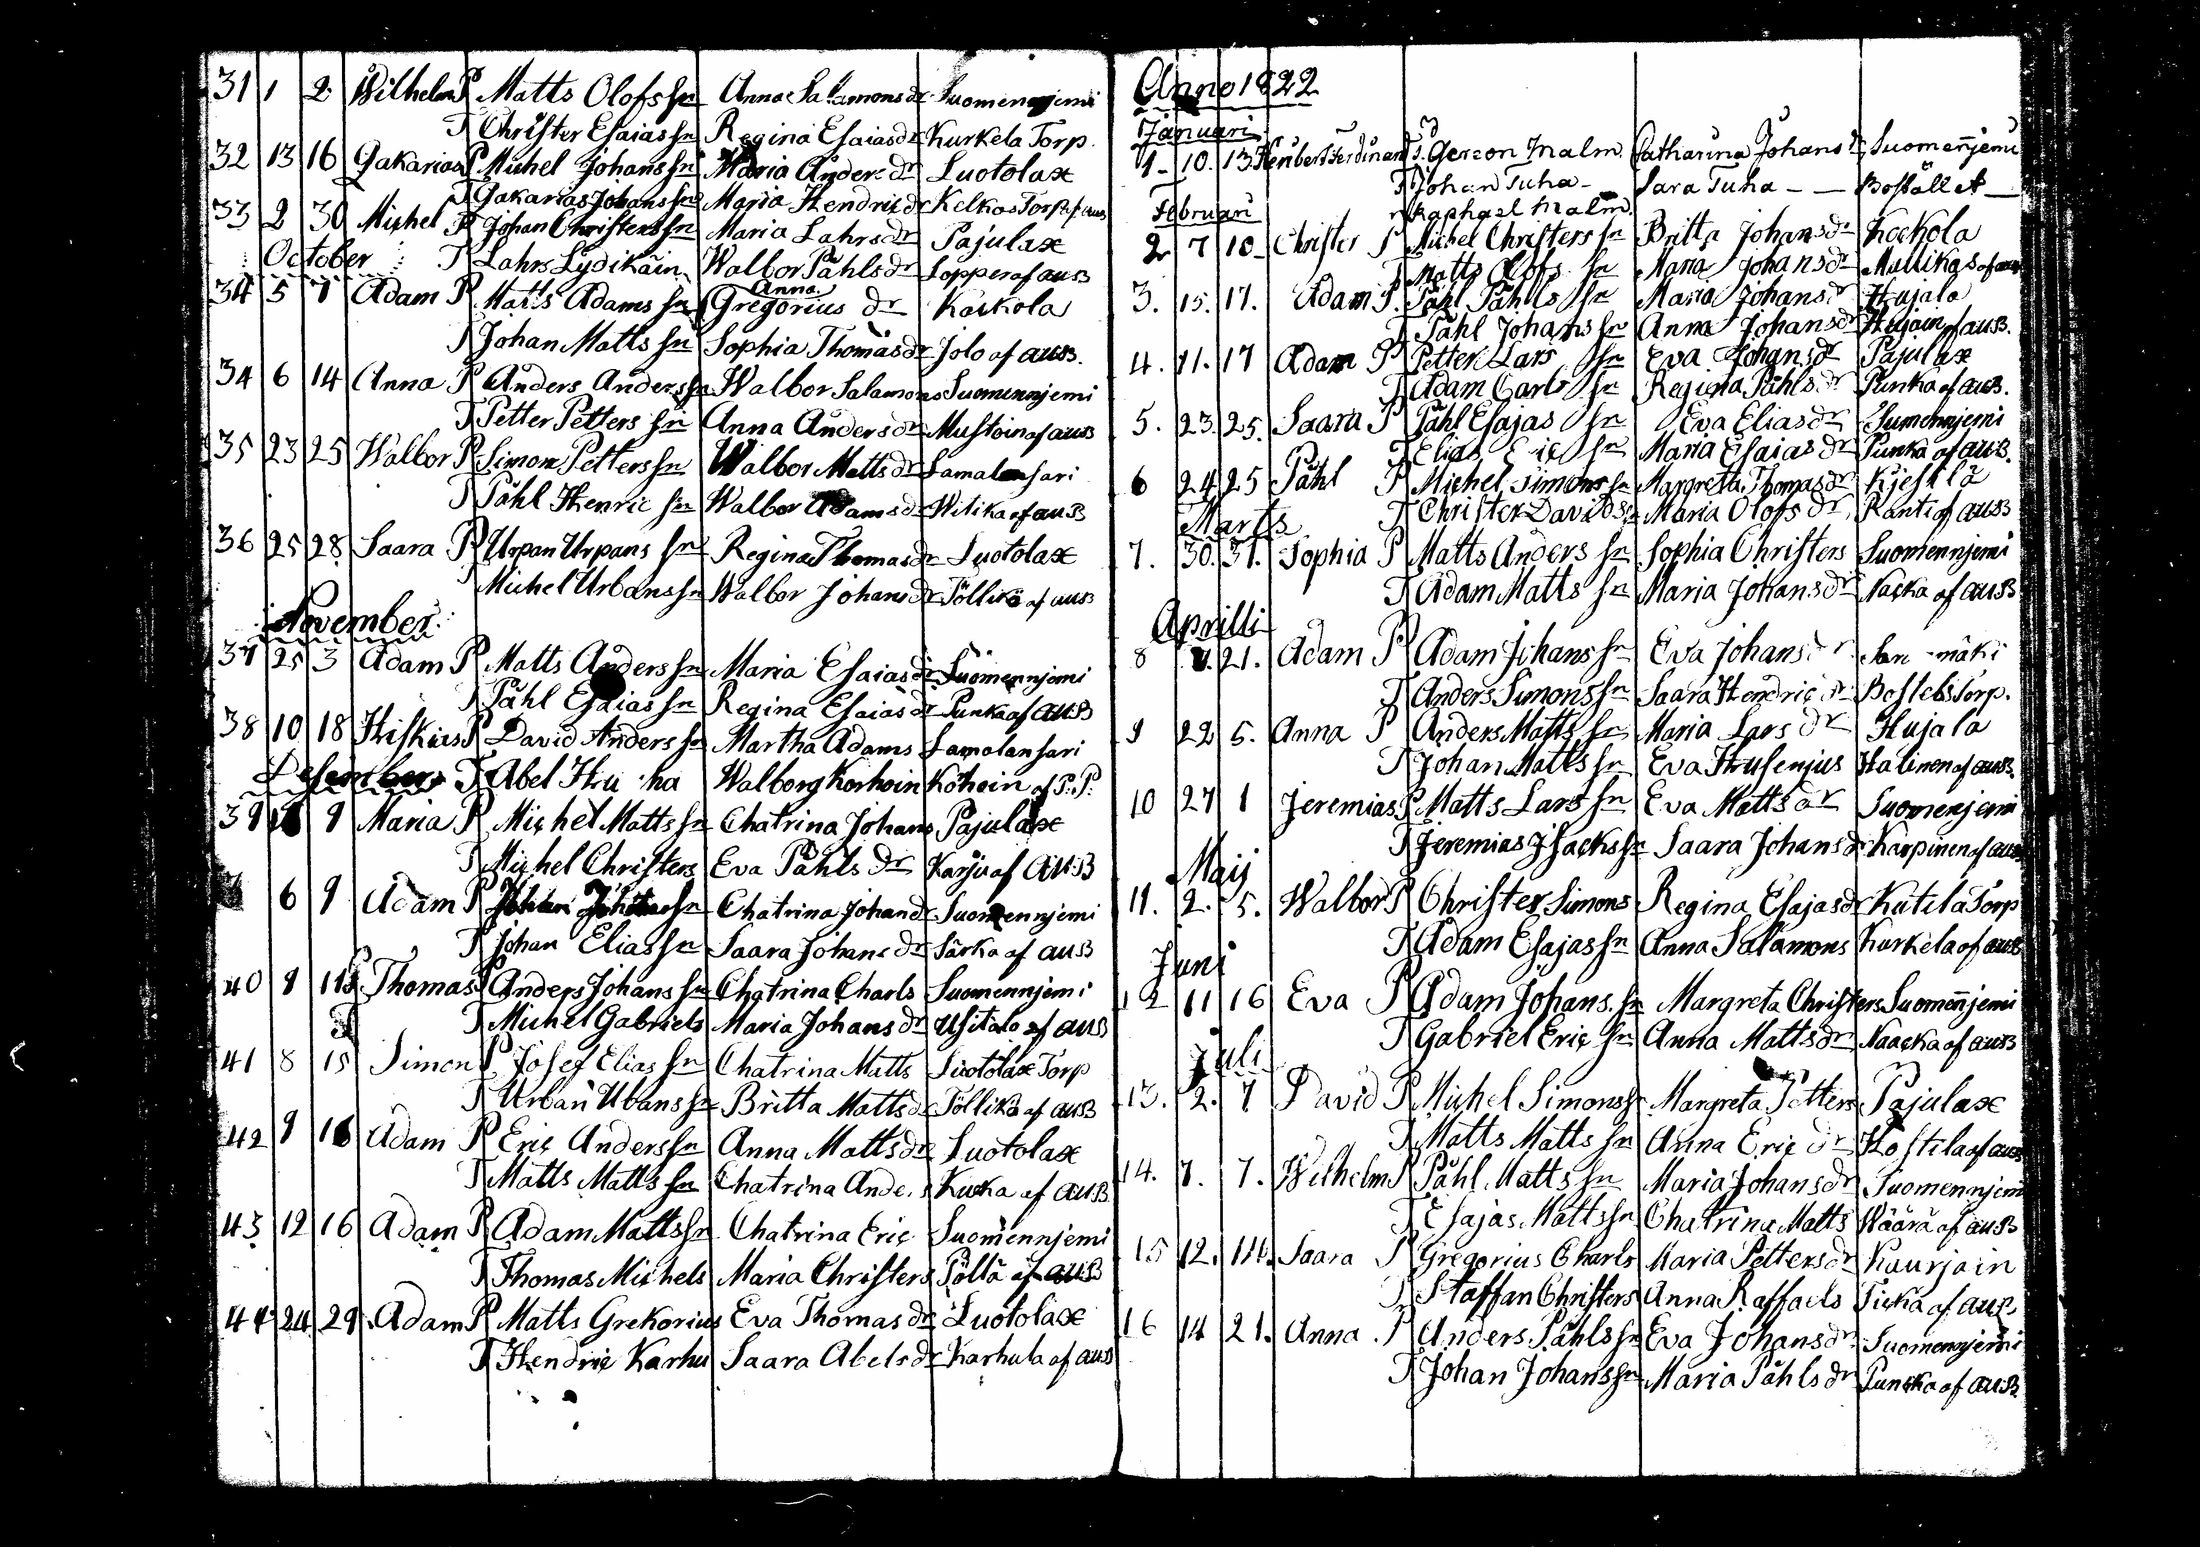 31 1 2 Wilhelm P Matts Olofs sn Anna Salamons dr Suomennjemi
T Christer Esaias sn Regina Esaias dr Kurkela Torp.
32 13 16 Gakarias P Michel Johans sn Maria Anders dr Luotolax
T Gakarias Johans sn Maria Hendric dr Kelkas Torp af aus
33 2 30 Michel P Johan Christers sn Maria Lahrs dr Pajulax
October T Lahrs Lydikäin Walbor Påhls dr Lopper af aus
34 5 7 Adam P Matts Adams sn Anna Gregorius dr Kackola
T Johan Matts sn Sophia Thomas dr Jolo af aus.
34 6 14 Anna P Anders Anders sn Walbor Salamons Suomennjemi
T Petter Petters sn Anna Anders dr Mustoin af aus
35 23 25 Walbor P Simon Petters sn Walbor Matts dr Lamalansari
T Påhl Henric sn Walbor Adams dr Witika af aus
36 25 28 Saara P Urpan Urpans sn Regina Thomas dr Luotolax
Michel Urbans sn Walbor Johans dr Töllikö af aus
November
37 25 3 Adam P Matts Anders sn Maria Esaias dr Suomennjemi
T Påhl Esaias sn Regina Esaias dr Punka af aus
38 10 18 Hiskias P David Anders sn Martha Adams Lamalansari
Desember T Abel Walborg Korhoin Köhöin af P:P:
39 9 Maria P Michel Matts sn Chatrina Johans Pajulax
T Michel Christers Eva Påhls dr Karju af aus
6 9 Adam P Johan sn Chatrina Johan dr Suomennjemi
T Johan Elias sn Saara Johans dr Särka af aus
40 9 Thomas P Anders Johans sn Chatrina Charls Suomennjemi
T Michel Gabriels Maria Johans dr Usitalo af aus
41 8 15 Simon P Josef Elias sn Chatrina Matts Luotolax Torp
T Urban Ubans sn Britta Matts dr Töllikö af aus
42 9 16 Adam P Eric Anders sn Anna Matts dr Luotolax
T Matts Matts sn Chatrina Kucka af aus
43 12 16 Adam P Adam Matts sn Chatrina Eric Suomennjemi
T Thomas Michels Maria Christers Pöllä af aus
44 24 29 Adam P Matts Grekorius Eva Thomas dr Luotolax
T Hendric Karhu Saara Abels dr Karhula af aus
Anno 1822
Januari
1 10. 13 Heribert Ferdinand Gereon Malm. Catharina Johans dr Suomennjemi
T Johan Tuha Sara Tuha Bostället
Raphael Malm.
Februari
2 7 10 Christer P Michel Christers sn Britta Johans dr Kockola
T Matts Olofs sn Maria Johans dr Mullikas af aus
3. 15. 17. Adam P. Påhl Påhls sn Maria Johans dr Hujala
T Påhl Johans sn Anna Johans dr Hujain af aus.
4. 11. 17 Adam P Petter Lars sn Eva Johans dr Pajulax
T Adam Carls sn Regina Påhls dr Punka af aus.
5. 23. 25. Saara P Påhl Esajas sn Eva Elias dr Sumennjemi
T Elias Eric sn Maria Esaias dr Punka af aus.
6 24 25 Påhl P Michel Simons sn Margreta Thomas dr Kjeskilä
T Christer Davids sn Maria Olofs dr Ranti af aus
Marts
7. 30. 31. Sophia P Matts Anders sn Sophia Christers Suomennjemi
T Adam Matts sn Maria Johans dr Nacka af aus
Aprilli
8 21. Adam P Adam Johans sn Eva Johans dr
T Anders Simons sn Saara Hendric dr Bostels Torp.
9 22 5. Anna P Anders Matts sn Maria Lars dr Hujala
T Johan Matts sn Eva Husenjus Halinen af aus.
10 27 1 Jeremias P Matts Lars sn Eva Matts dr Suomenjemi
T Jeremias Jsacks sn Saara Johans dr Karpinen af aus
Maij
11. 2. 5. Walbor P Christer Simons Regina Esajas dr Kutila Torp
T Adam Esajas sn Anna Salamons Kurkela af aus
Juni
12 11 16 Eva P Adam Johans. sn Margreta Christers Suomennjemi
T Gabriel Eric sn Anna Matts dr Naacka af aus
Juli
13. 2. 7 David P Michel Simons sn Margreta Petters Pajulax
T Matts Matts sn Anna Eric dr Hostila af aus
14. 7. 7. Wilhelm P Påhl Matts sn Maria Johans dr Suomennjemi
T Esajas Matts sn Chatrina Matts Wäärä af aus
15 12. 14. Saara P Gregorius Charls Maria Petters dr Kaurjain
T Staffan Christers Anna Raffaels Ticka af aus
16 14 21. Anna P Anders Påhls sn Eva Johans dr Suomennjemi
T Johan Johans sn Maria Påhls dr Puncka af aus.